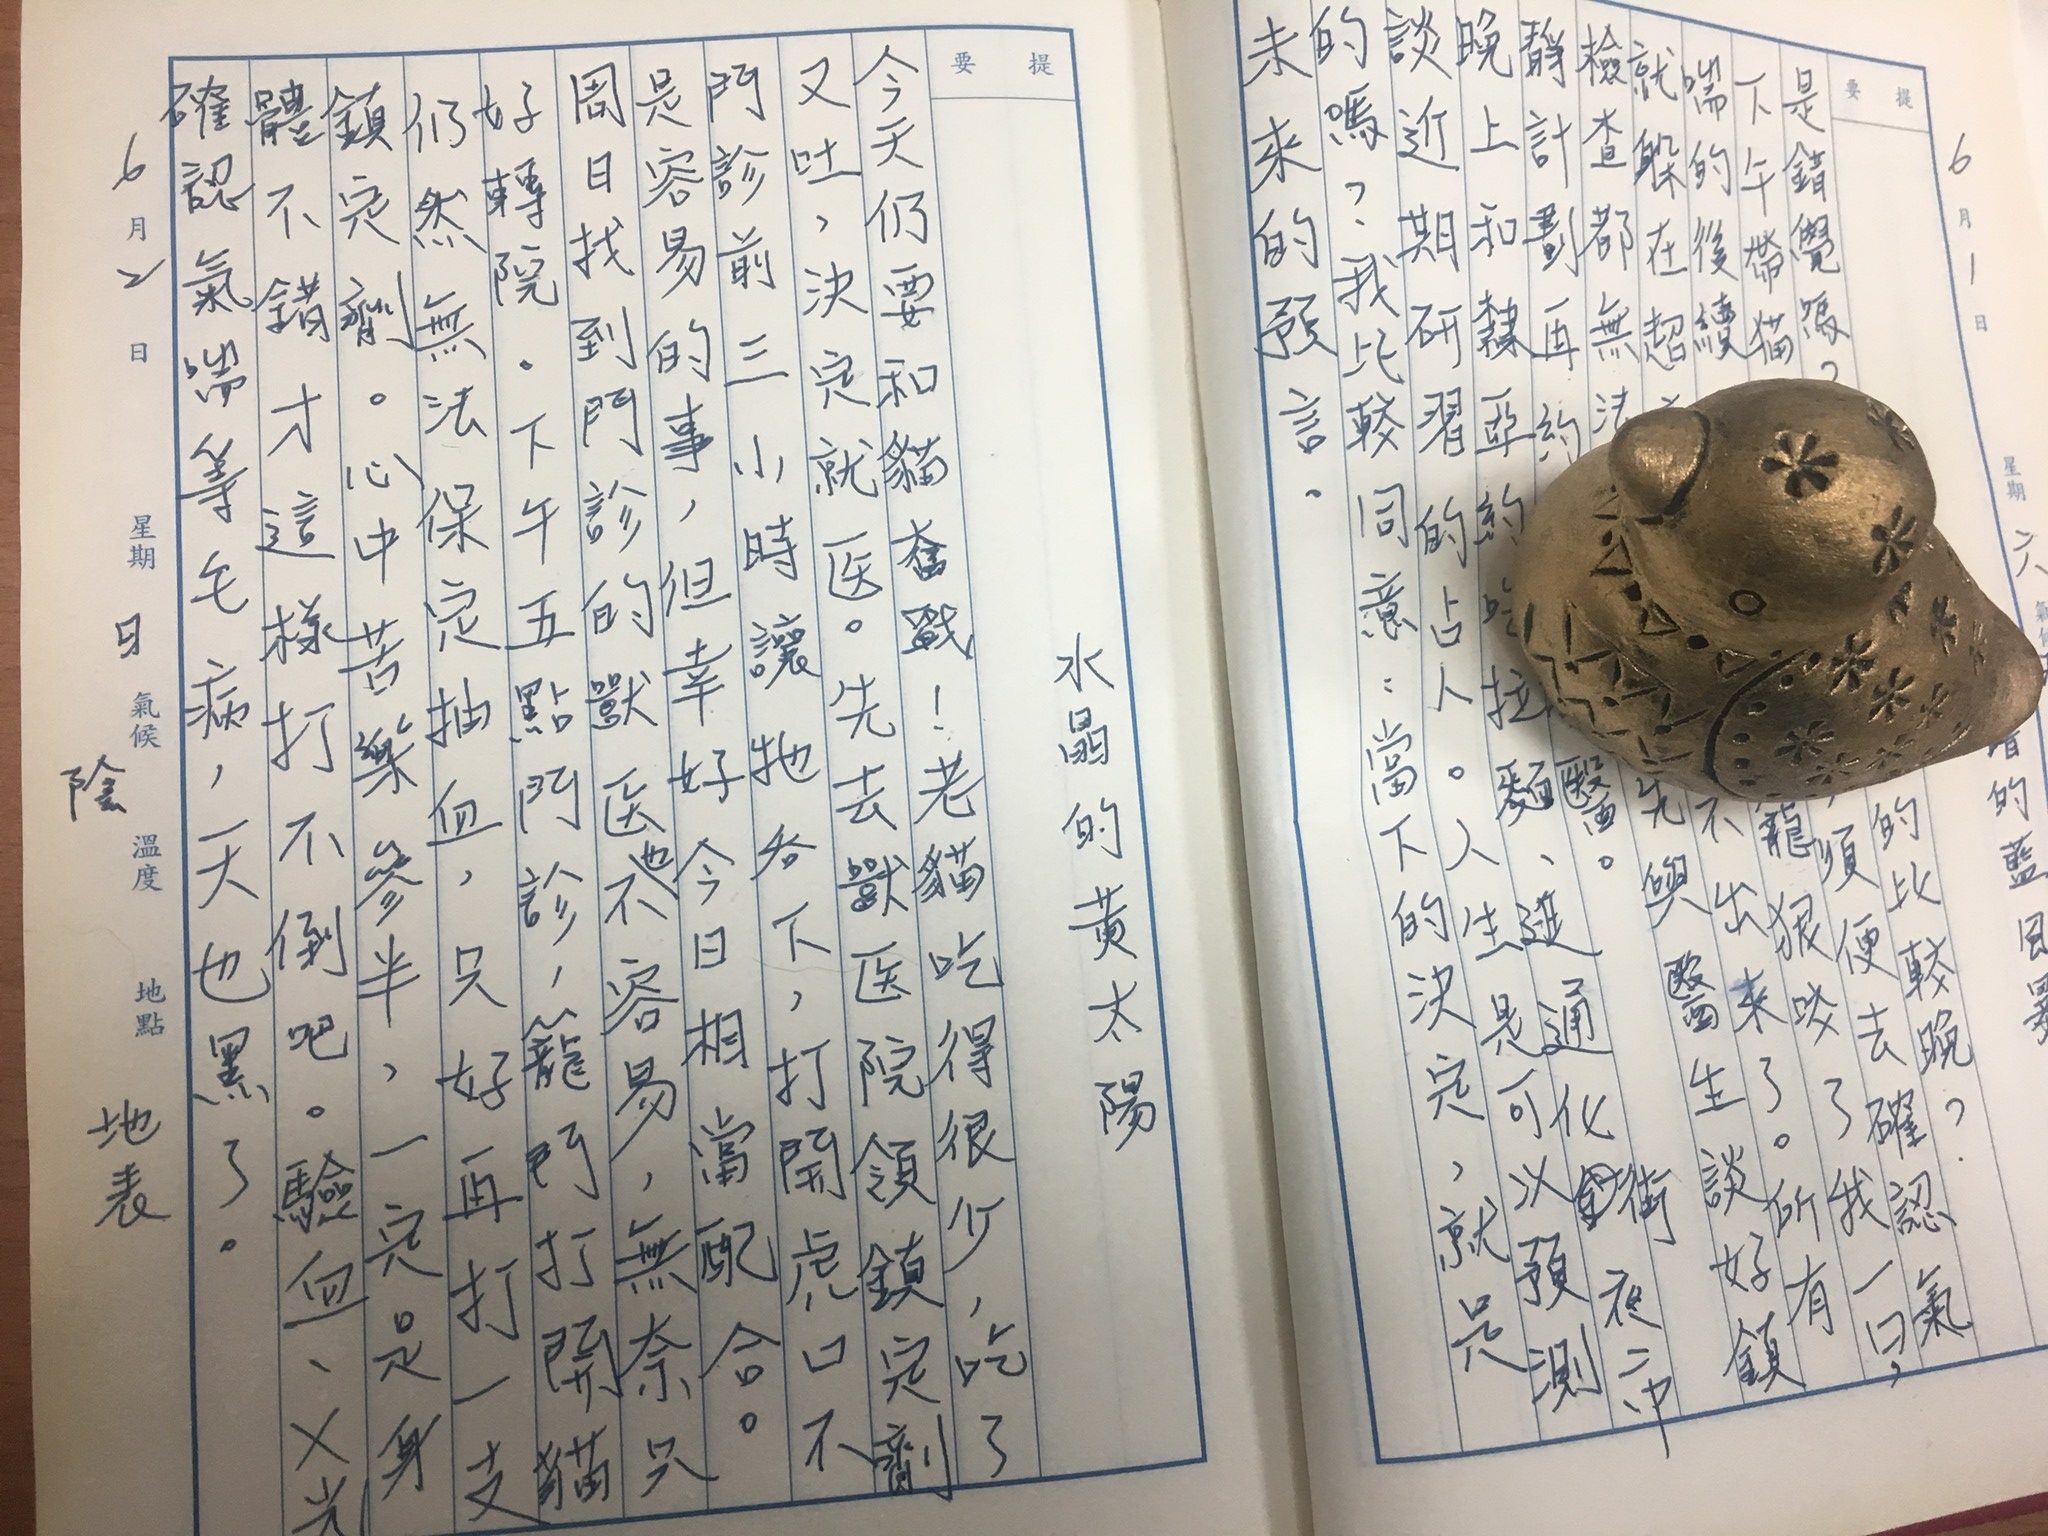 6月1日 星期六 氣候
的藍風暴
提要
是錯覺嗎? 的比較晚?
下午帶貓 便去確認氣
喘的後續 籠狠咬了我一口,
就躲在超 不出來了。所有
檢查都無法 先與醫生談好鎮
靜計劃再約 醫。
晚上和隸亞約吃拉麵、逛通化街夜市
談近期研習的占人。人生是可以預測
的嗎?我比較同意:當下的決定,就是
未來的預言。
提要
水晶的黃太陽
今天仍要和貓奮戰!老貓吃得很少,吃了
又吐,決定就医。先去獸医院領鎮定劑
門診前三小時讓牠吞下,打開虎口不
是容易的事,但幸好今日相當配合。
周日找到門診的獸医也不容易,無奈只
好轉院。下午五點門診,籠門打開貓
仍然無法保定抽血,只好再打一支
鎮定劑。心中苦樂參半,一定是身
體不錯才這樣打不倒吧。驗血、X光
確認氣喘等毛病,天也黑了。
6月2日 星期日 氣候陰 溫度 地點地表